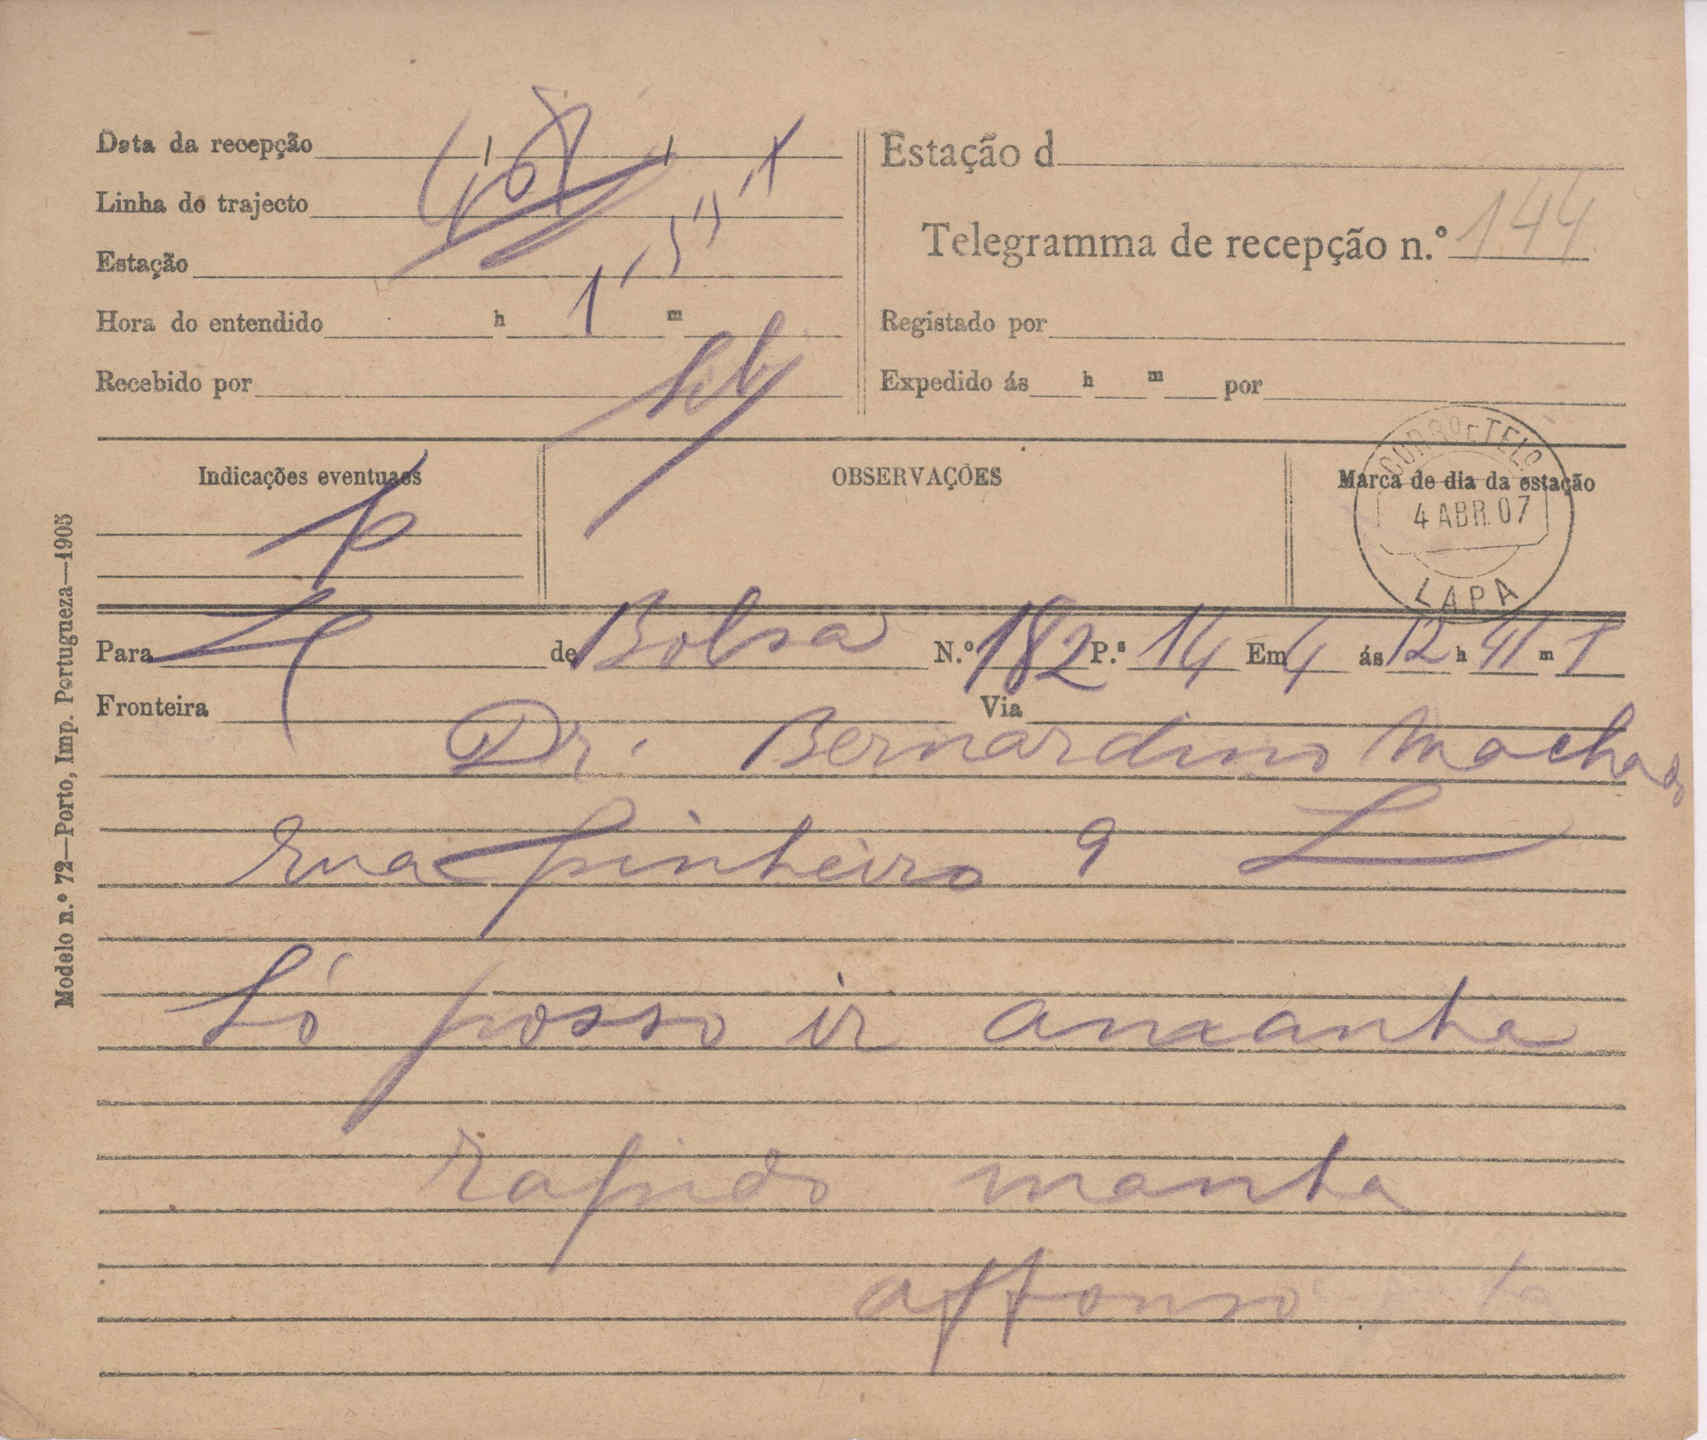 Data da recepção
Linha do trajecto
Estação
Hora do entendido h 1 m
Recebido por
Estação d
Telegramma de recepção n.º 144
Registado por
Expedido ás h m por
Indicações eventuaes
OBSERVAÇÕES
Marca de dia da estação
CORRO E TELO
4 ABR. 07
LAPA
Para L de Bolsa N.º 182 P.s 14 Em 4 ás 12 h 41 m T
Fronteira Via
Dr. Bernardino Machado
rua pinheiro 9 L
Só posso ir amanha
rapido manha
affonso
Modelo n.º 72—Porto, Imp. Portugueza—1905